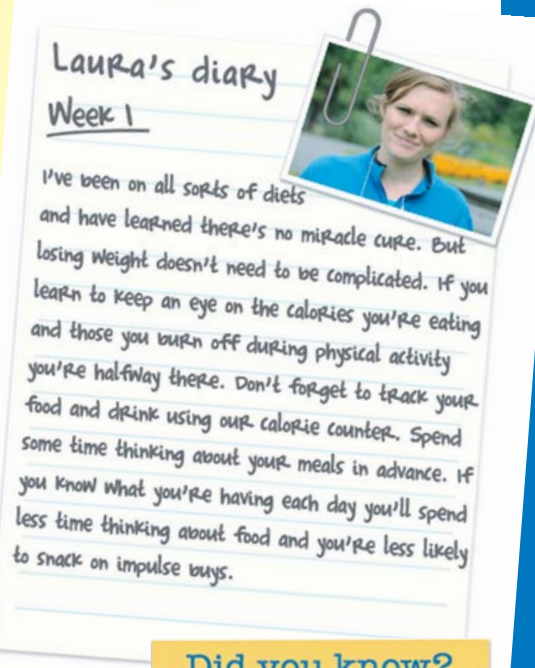 Laura's diary
Week 1
I've been on all sorts of diets
and have learned there's no miracle cure. But
losing weight doesn't need to be complicated. If you
learn to keep an eye on the calories you're eating
and those you burn off during physical activity
you're halfway there. Don't forget to track your
food and drink using our calorie counter. Spend
some time thinking about your meals in advance. If
you know what you're having each day you'll spend
less time thinking about food and you're less likely
to snack on impulse buys.
Did you know?